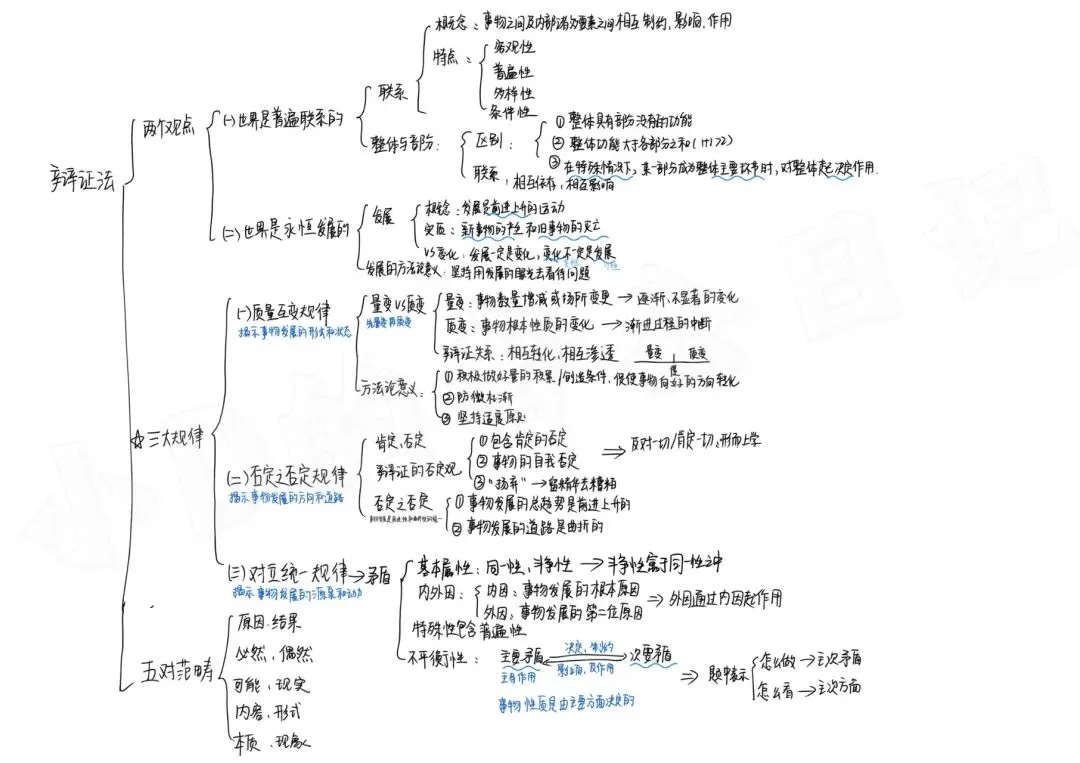 辩证法
两个观点
(一)世界是普遍联系的
联系
概念：事物之间及内部诸多要素之间相互制约、影响、作用
特点：
客观性
普遍性
多样性
条件性
整体与部分：
区别：
① 整体具有部分没有的功能
② 整体功能大于各部分之和(1+1>2)
③ 在特殊情况下，某一部分成为整体主要改事时，对整体起决定作用.
联系，相互依存，相互影响
(二)世界是永恒发展的
发展
概念：发展是前进上升的运动
实质：新事物的产生和旧事物的灭亡
VS变化：发展一定是变化，变化不一定是发展
发展的方法论意义：坚持用发展的眼光去看待问题
☆三大规律
(一)质量互变规律
揭示事物发展的形式和状态
量变VS质变
先量变再质变
量变：事物数量增减或场所变更→逐渐、不显著的变化
质变：事物根本性质的变化→渐进过程的中断
辩证关系：相互转化，相互渗透
量变 质变
度
方法论意义：
① 积极做好量的积累/创造条件，促使事物向好的方向转化
② 防微杜渐
③ 坚持适度原则
(二)否定之否定规律
揭示事物发展的方向和道路
肯定、否定
辩证的否定观
① 包含肯定的否定
② 事物的自我否定
③ “扬弃”→留精华去糟粕
⇒ 反对一切/肯定一切：形而上学
否定之否定
事物发展是前进性和曲折性的统一
① 事物发展的总趋势是前进上升的
② 事物发展的道路是曲折的
(三)对立统一规律→矛盾
揭示事物发展的源泉和动力
基本属性：同一性，斗争性→斗争性寓于同一性之中
内外因：
内因：事物发展的根本原因
外因：事物发展的第二位原因
⇒ 外因通过内因起作用
特殊性包含普遍性
不平衡性：
主要矛盾
主导作用
决定、制约
影响、反作用
次要矛盾
事物性质是由主要方面决定的
⇒ 题中表示
怎么做→主次矛盾
怎么看→主次方面
五对范畴
原因、结果
必然，偶然
可能，现实
内容、形式
本质、现象